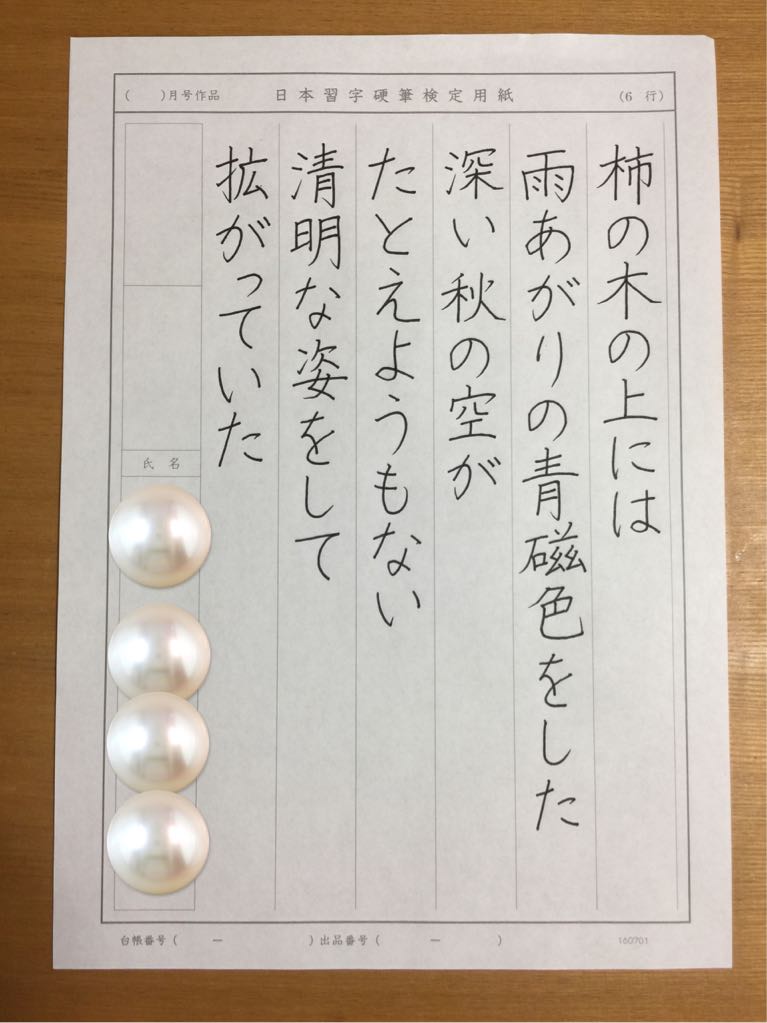 (　　)月号作品　日本習字硬筆検定用紙　(6 行)
柿の木の上には
雨あがりの青磁色をした
深い秋の空が
たとえようもない
清明な姿をして
拡がっていた
氏名
台帳番号(　　ー　　)出品番号(　　ー　　)　160701